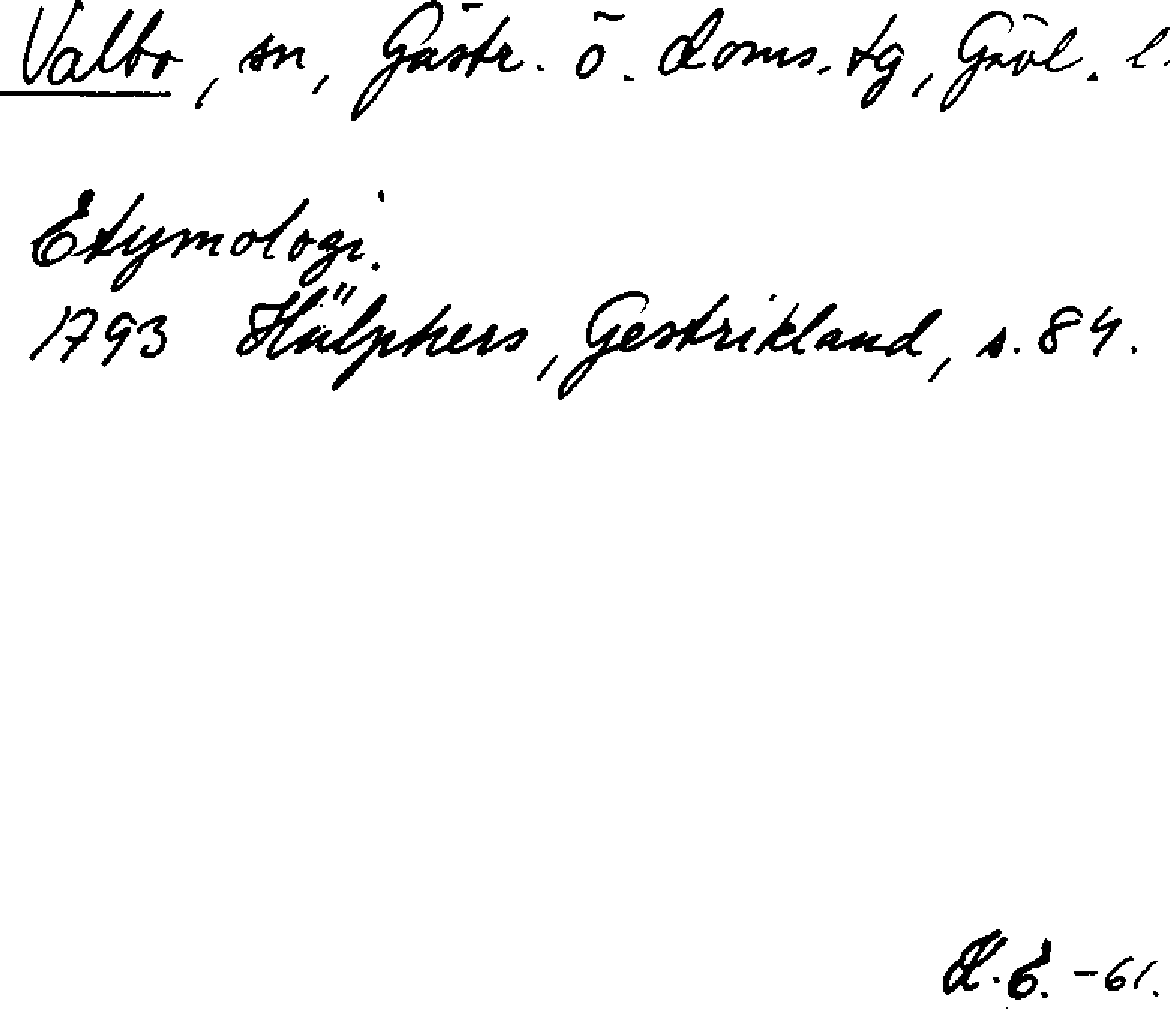 Valbo, sn, Gästr. ö. doms. tg, Gävl. l.
Etymologi.
1793 Hülphers, Gestrikland, s. 84.
H. E. -61.